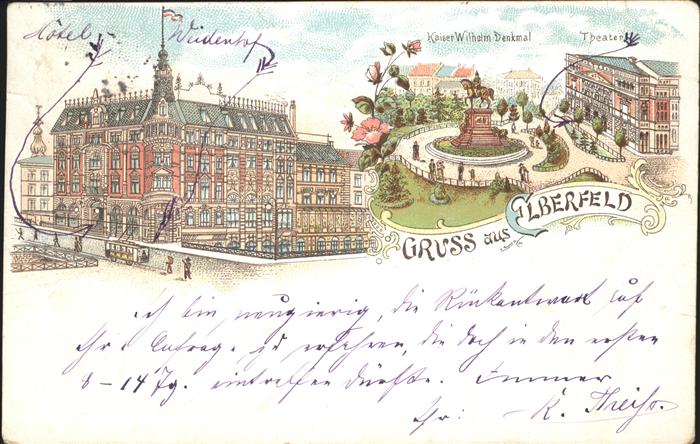 Hôtel Weidenhof
Kaiser Wilhelm Denkmal
Theater
GRUSS aus ELBERFELD
Ich bin neugierig, die Rückantwort auf
Ihr. Antrag. zu erfahren, die doch in den ersten
8-14 Tg. eintreffen dürfte. Immer
Ihr: K.